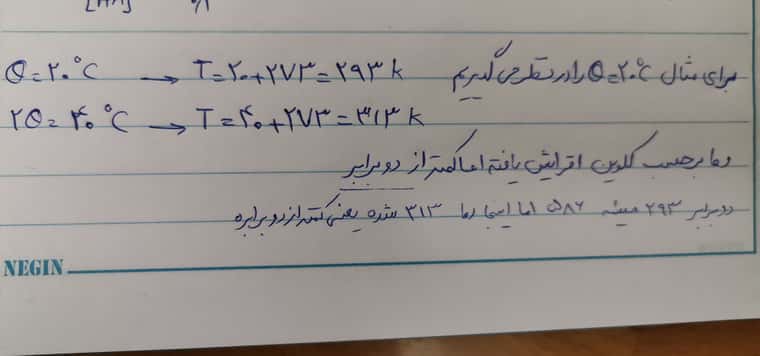 برای مثال θ=۲۰°C را در نظر می گیریم θ=۲۰°C → T=۲۰+۲۷۳=۲۹۳ k
۲θ=۴۰°C → T=۴۰+۲۷۳=۳۱۳ k
دما برحسب کلوین افزایش یافته اما کمتر از دو برابر
دو برابر ۲۹۳ میشه ۵۸۶ اما اینجا دما ۳۱۳ شده یعنی کمتر از دو برابره
NEGIN